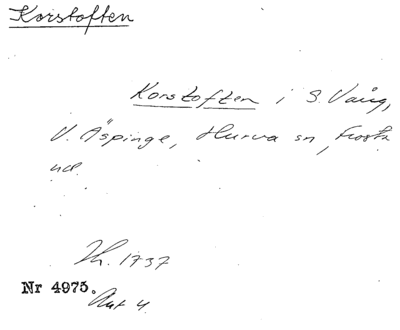 Korstoften
Korstoften i S. Vång,
V. Äspinge, Hurva sn, Frosta
hd.
Lh. 1737
Nr 4975.
Akt 4.